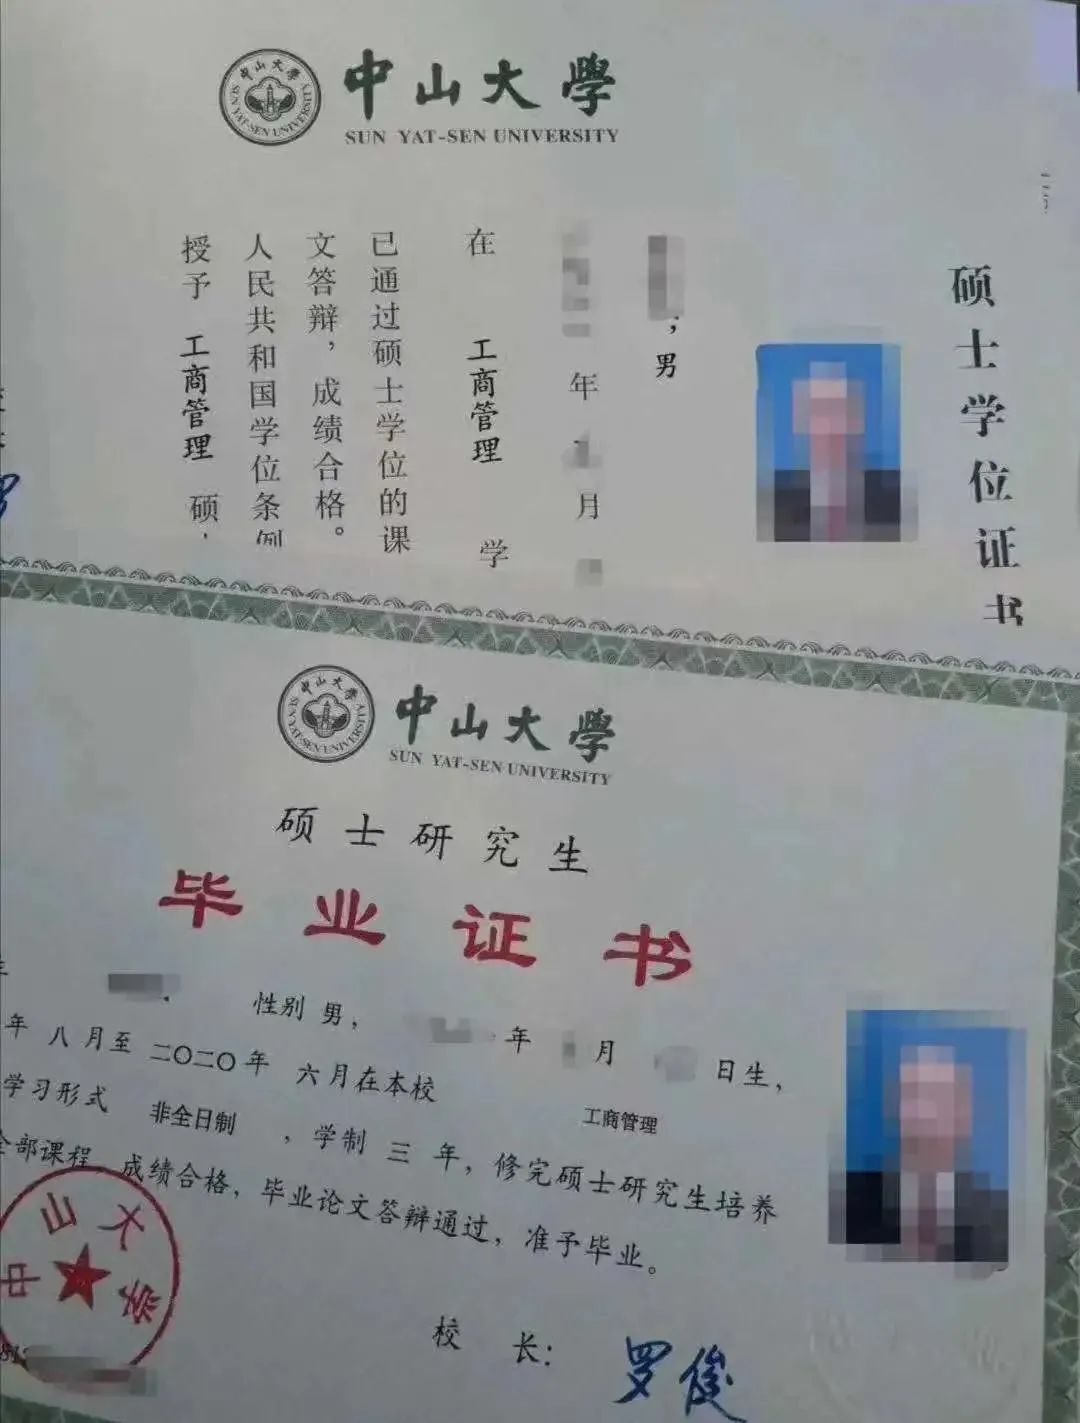 中山大學
SUN YAT-SEN UNIVERSITY
硕士学位证书
；男
年 月
在 工商管理 学
已通过硕士学位的课
文答辩，成绩合格。
人民共和国学位条例
授予 工商管理 硕
中山大學
SUN YAT-SEN UNIVERSITY
中山大學
SUN YAT-SEN UNIVERSITY
中山大學
SUN YAT-SEN UNIVERSITY
硕士研究生
毕业证书
性别 男， 年 月 日生，
年 八 月至 二〇二〇 年 六 月在本校 工商管理
学习形式 非全日制 ，学制 三 年，修完硕士研究生培养
全部课程 成绩合格，毕业论文答辩通过，准予毕业。
中山大学
校 长：
罗俊